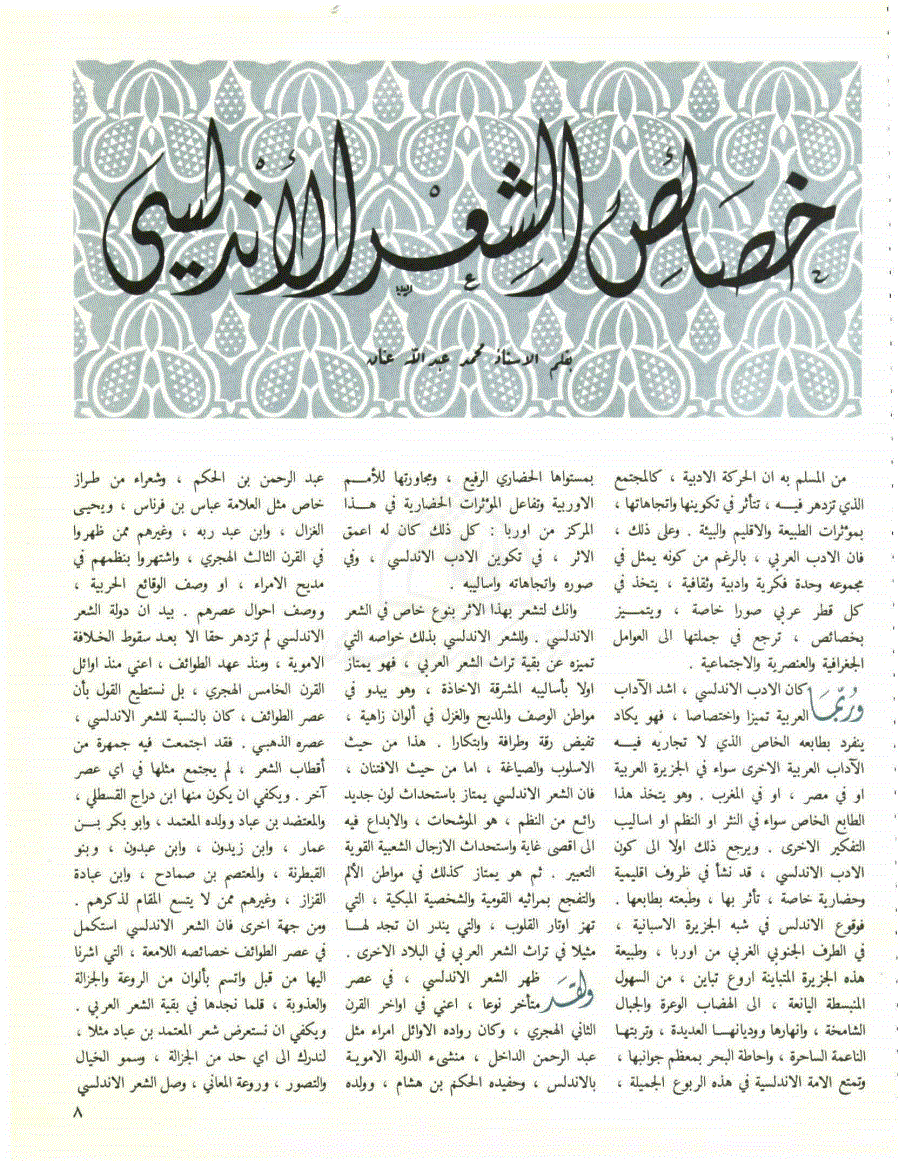 خصائص الشعر الأندلسي
بقلم الاستاذ محمد عبدالله عنان
من المسلم به ان الحركة الادبية ، كالمجتمع
الذي تزدهر فيــه ، تتأثر في تكوينها واتجاهاتها ،
بموثرات الطبيعة والاقليم والبيئة . وعلى ذلك ،
فان الادب العربي ، بالرغم من كونه يمثل في
مجموعه وحدة فكرية وادبية وثقافية ، يتخذ في
كل قطر عربي صورا خاصة ، ويتمــيز
بخصائص ، ترجع في جملتها الى العوامل
الجغرافية والعنصرية والاجتماعية .
وربّما كان الادب الاندلسي ، اشد الآداب
العربية تميزا واختصاصا ، فهو يكاد
ينفرد بطابعه الخاص الذي لا تجاريه فيــه
الآداب العربية الاخرى سواء في الجزيرة العربية
او في مصر ، او في المغرب . وهو يتخذ هذا
الطابع الخاص سواء في النثر او النظم او اساليب
التفكير الاخرى . ويرجع ذلك اولا الى كون
الادب الاندلسي ، قد نشأ في ظروف اقليمية
وحضارية خاصة ، تأثر بها ، وطبعته بطابعها .
فوقوع الاندلس في شبه الجزيرة الاسبانية ،
في الطرف الجنوبي الغربي من اوربا ، وطبيعة
هذه الجزيرة المتباينة اروع تباين ، من السهول
المنبسطة اليانعة ، الى الهضاب الوعرة والجبال
الشامخة ، وانهارها ووديانهــا العديدة ، وتربتهـا
الناعمة الساحرة ، واحاطة البحر بمعظم جوانبها ،
وتمتع الامة الاندلسية في هذه الربوع الجميلة ،
بمستواها الحضاري الرفيع ، ومجاورتها للأمــم
الاوربية وتفاعل الموثرات الحضارية في هــذا
المركز من اوربا : كل ذلك كان له اعمق
الاثر ، في تكوين الادب الاندلسي ، وفي
صوره واتجاهاته واساليبه .
وانك لتشعر بهذا الاثر بنوع خاص في الشعر
الاندلسي . وللشعر الاندلسي بذلك خواصه التي
تميزه عن بقية تراث الشعر العربي ، فهو يمتاز
اولا بأساليبه المشرقة الاخاذة ، وهو يبدو في
مواطن الوصف والمديح والغزل في ألوان زاهية ،
تفيض رقة وطرافة وابتكارا . هذا من حيث
الاسلوب والصياغة ، اما من حيث الافتنان ،
فان الشعر الاندلسي يمتاز باستحداث لون جديد
رائـع من النظم ، هو الموشحات ، والابداع فيه
الى اقصى غاية واستحداث الازجال الشعبية القوية
التعبير . ثم هو يمتاز كذلك في مواطن الألم
والتفجع بمراثيه القومية والشخصية المبكية ، التي
تهز اوتار القلوب ، والتي يندر ان تجد لهــا
مثيلا في تراث الشعر العربي في البلاد الاخرى .
ولقد ظهر الشعر الاندلسي ، في عصر
متأخر نوعا ، اعني في اواخر القرن
الثاني الهجري ، وكان رواده الاوائل امراء مثل
عبد الرحمن الداخل ، منشىء الدولة الامويـة
بالاندلس ، وحفيده الحكم بن هشام ، وولده
عبد الرحمن بن الحكم ، وشعراء من طـراز
خاص مثل العلامة عباس بن فرناس ، ويحيـى
الغزال ، وابن عبد ربه ، وغيرهم ممن ظهروا
في القرن الثالث الهجري ، واشتهروا بنظمهم في
مديح الامراء ، او وصف الوقائع الحربية ،
ووصف احوال عصرهم . بيد ان دولة الشعر
الاندلسي لم تزدهر حقا الا بعـد سقوط الخلافة
الاموية ، ومنذ عهد الطوائف ، اعني منذ اوائل
القرن الخامس الهجري ، بل نستطيع القول بأن
عصر الطوائف ، كان بالنسبة للشعر الاندلسي ،
عصره الذهبـي . فقد اجتمعت فيه جمهرة من
أقطاب الشعر ، لم يجتمع مثلها في اي عصر
آخر . ويكفي ان يكون منها ابن دراج القسطلي ،
والمعتضد بن عباد وولده المعتمد ، وابو بكر بــن
عمار ، وابن زيدون ، وابن عبدون ، وبنو
القبطرنة ، والمعتصم بن صمادح ، وابن عبادة
القزاز ، وغيرهم ممن لا يتسع المقام لذكرهم .
ومن جهة اخرى فان الشعر الاندلسي استكمل
في عصر الطوائف خصائصه اللامعة ، التي اشرنا
اليها من قبل واتسم بألوان من الروعة والجزالة
والعذوبة ، قلما نجدها في بقية الشعر العربي .
ويكفي ان نستعرض شعر المعتمد بن عباد مثلا ،
لندرك الى اي حد من الجزالة ، وسمو الخيال
والتصور ، وروعة المعاني ، وصل الشعر الاندلسي
٨